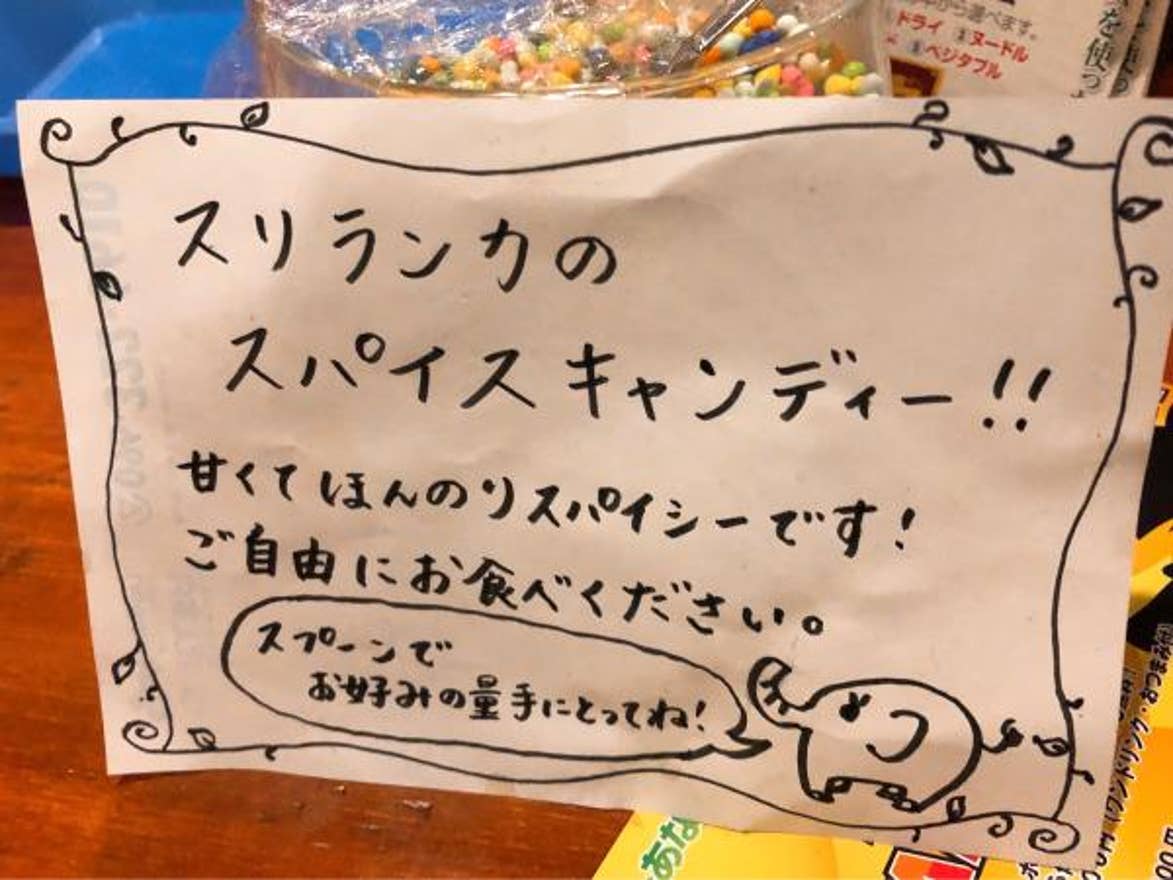 から選べます。
ドライ ②ヌードル
③ベジタブル
を使っ
スリランカの
スパイスキャンディー!!
甘くてほんのりスパイシーです!
ご自由にお食べください。
スプーンで
お好み量手にとってね!
(ワンドリンク・おつまみ付)
00円
あな